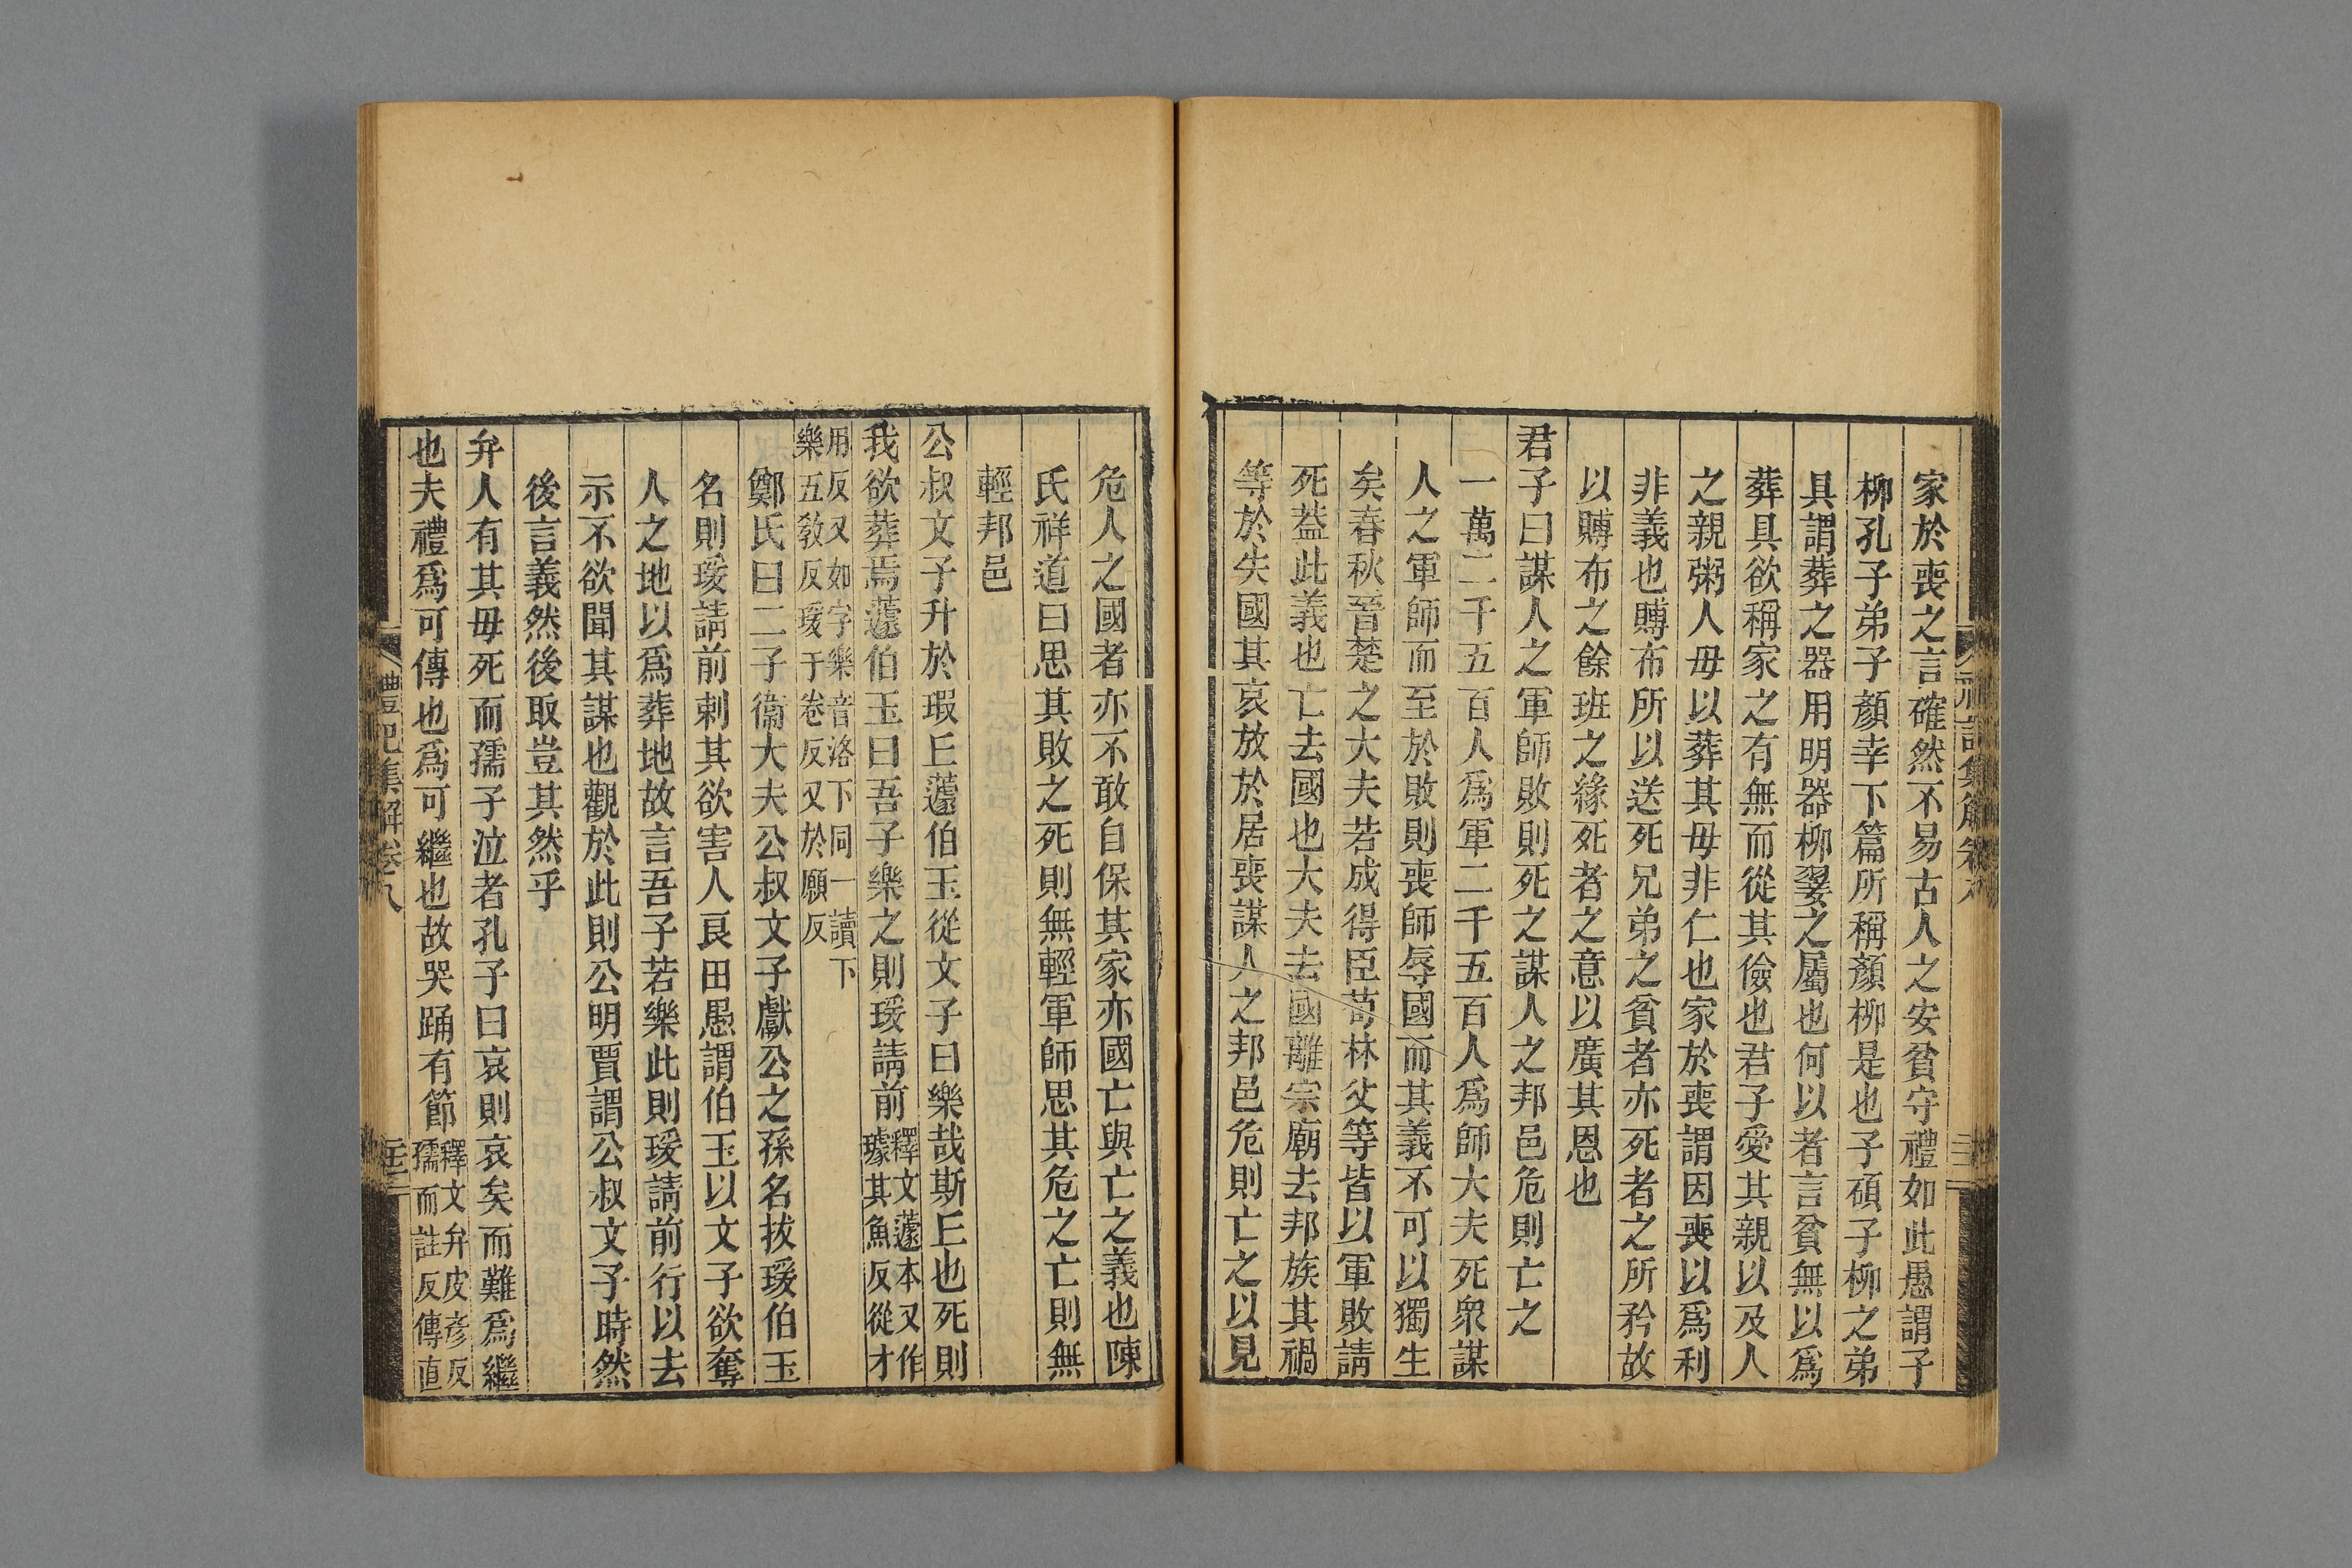 家於喪之言確然不易古人之安貧守禮如此愚謂子
柳孔子弟子顏幸下篇所稱顏柳是也子碩子柳之弟
具謂葬之器用明器柳翣之屬也何以者言貧無以爲
葬具欲稱家之有無而從其儉也君子愛其親以及人
之親粥人毋以葬其毋非仁也家於喪謂因喪以爲利
非義也賻布所以送死兄弟之貧者亦死者之所矜故
以賻布之餘班之緣死者之意以廣其恩也
君子曰謀人之軍師敗則死之謀人之邦邑危則亡之
一萬二千五百人爲軍二千五百人爲師大夫死衆謀
人之軍師而至於敗則喪師辱國而其義不可以獨生
矣春秋晉楚之大夫若成得臣荀林父等皆以軍敗請
死葢此義也亡去國也大夫去國離宗廟去邦族其禍
等於失國其哀放於居喪謀人之邦邑危則亡之以見
危人之國者亦不敢自保其家亦國亡與亡之義也陳
氏祥道曰思其敗之死則無輕軍師思其危之亡則無
輕邦邑
公叔文子升於瑕丘蘧伯玉從文子曰樂哉斯丘也死則
我欲葬焉蘧伯玉曰吾子樂之則瑗請前釋文蘧本又作
璩其魚反從才
用反又如字樂音洛下同一讀下
樂五敎反瑗于卷反又於願反
鄭氏曰二子衞大夫公叔文子獻公之孫名拔瑗伯玉
名則瑗請前刺其欲害人良田愚謂伯玉以文子欲奪
人之地以爲葬地故言吾子若樂此則瑗請前行以去
示不欲聞其謀也觀於此則公明賈謂公叔文子時然
後言義然後取豈其然乎
弁人有其毋死而孺子泣者孔子曰哀則哀矣而難爲繼
也夫禮爲可傳也爲可繼也故哭踊有節釋文弁皮彥反
孺而註反傳直
禮記集解卷八